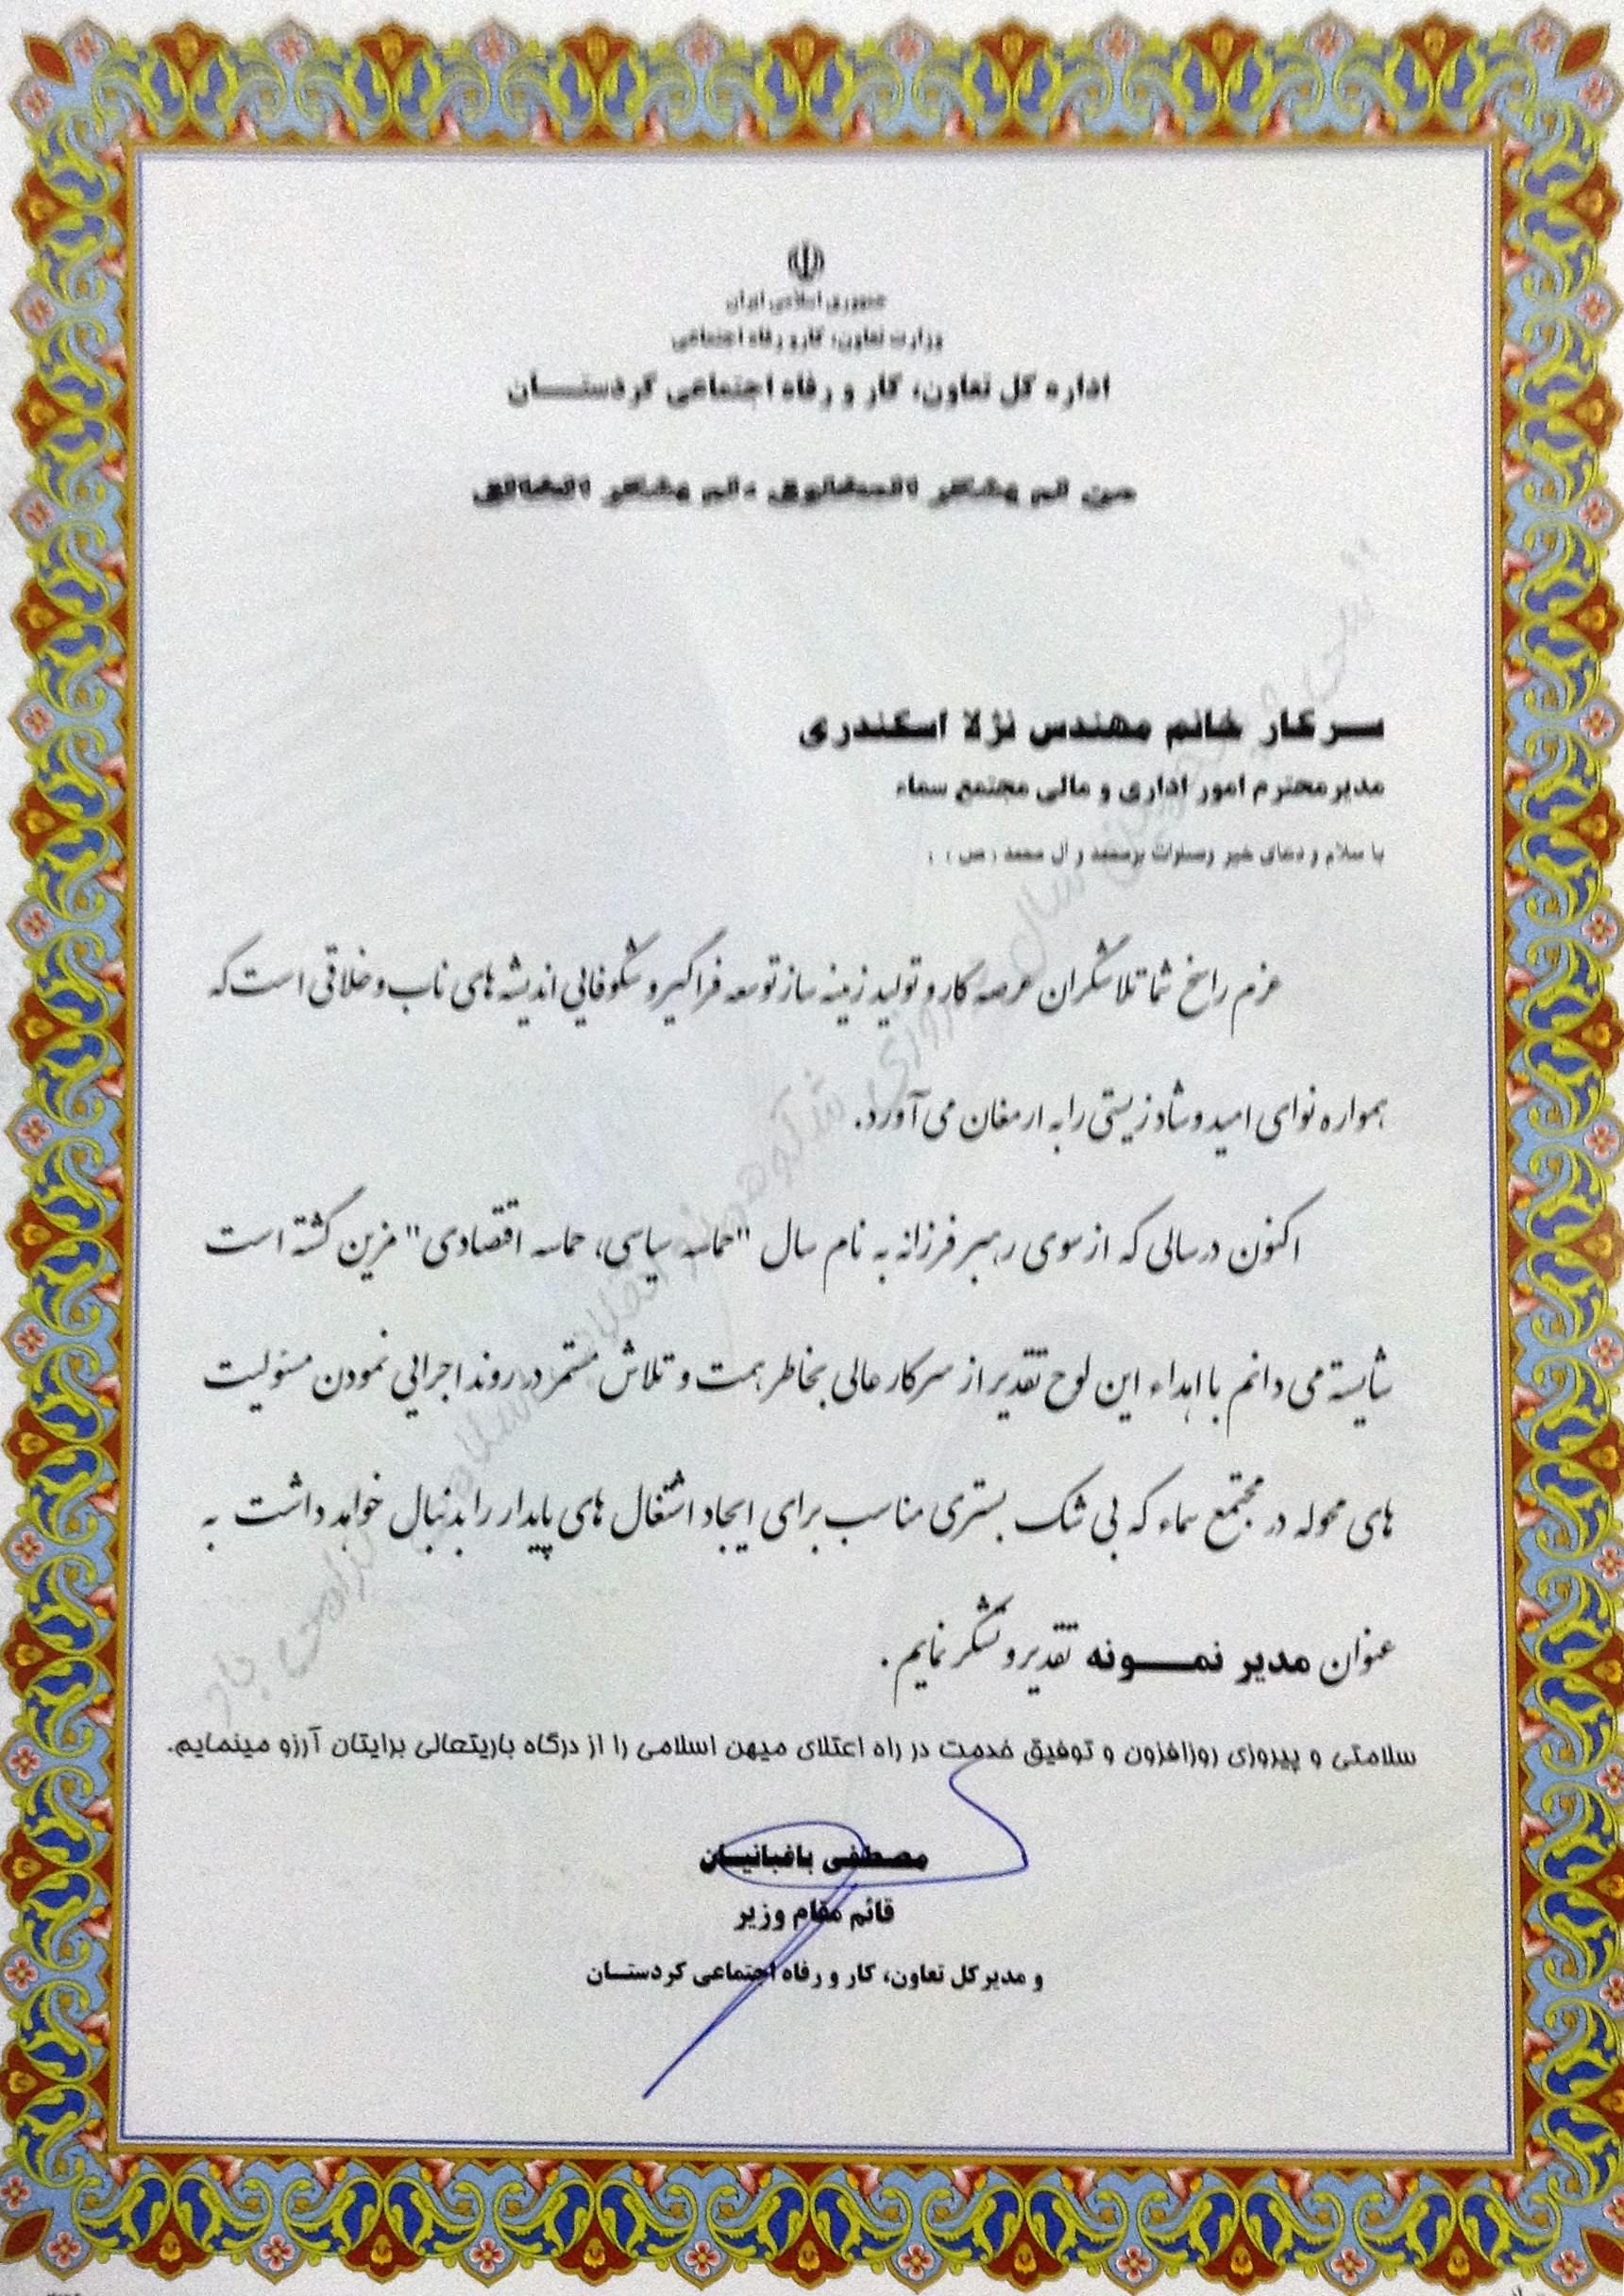 جمهوری اسلامی ایران
وزارت تعاون، کار و رفاه اجتماعی
اداره کل تعاون، کار و رفاه اجتماعی کردستـــان
من لم یشکر المخلوق ، لم یشکر الخالق
ســرکار خانم مهندس نژلا اسکندری
مدیر محترم امور اداری و مالی مجتمع سماء
با سلام و دعای خیر وصلوات برمحمد و آل محمد (ص) ؛
عزم راسخ شما تلاشگران عرصه کار و تولید زمینه ساز توسعه فراگیر و شکوفایی اندیشه های ناب و خلاقی است که
همواره نوای امید و شاد زیستی را به ارمغان می آورد.
اکنون درسالی که از سوی رهبر فرزانه به نام سال "حماسه سیاسی، حماسه اقتصادی" مزین گشته است
شایسته می دانم با اهداء این لوح تقدیر از سرکار عالی بخاطر همت و تلاش مستمر در روند اجرایی نمودن مسئولیت
های محوله در مجتمع سماء که بی شک بستری مناسب برای ایجاد اشتغال های پایدار را بدنبال خواهد داشت به
عنوان مدیر نمـــونه تقدیر و تشکر نمایم .
سلامتی و پیروزی روزافزون و توفیق خدمت در راه اعتلای میهن اسلامی را از درگاه باریتعالی برایتان آرزو مینمایم.
مصطفی باغبانیــان
قائم مقام وزیر
و مدیرکل تعاون، کار و رفاه اجتماعی کردستــان